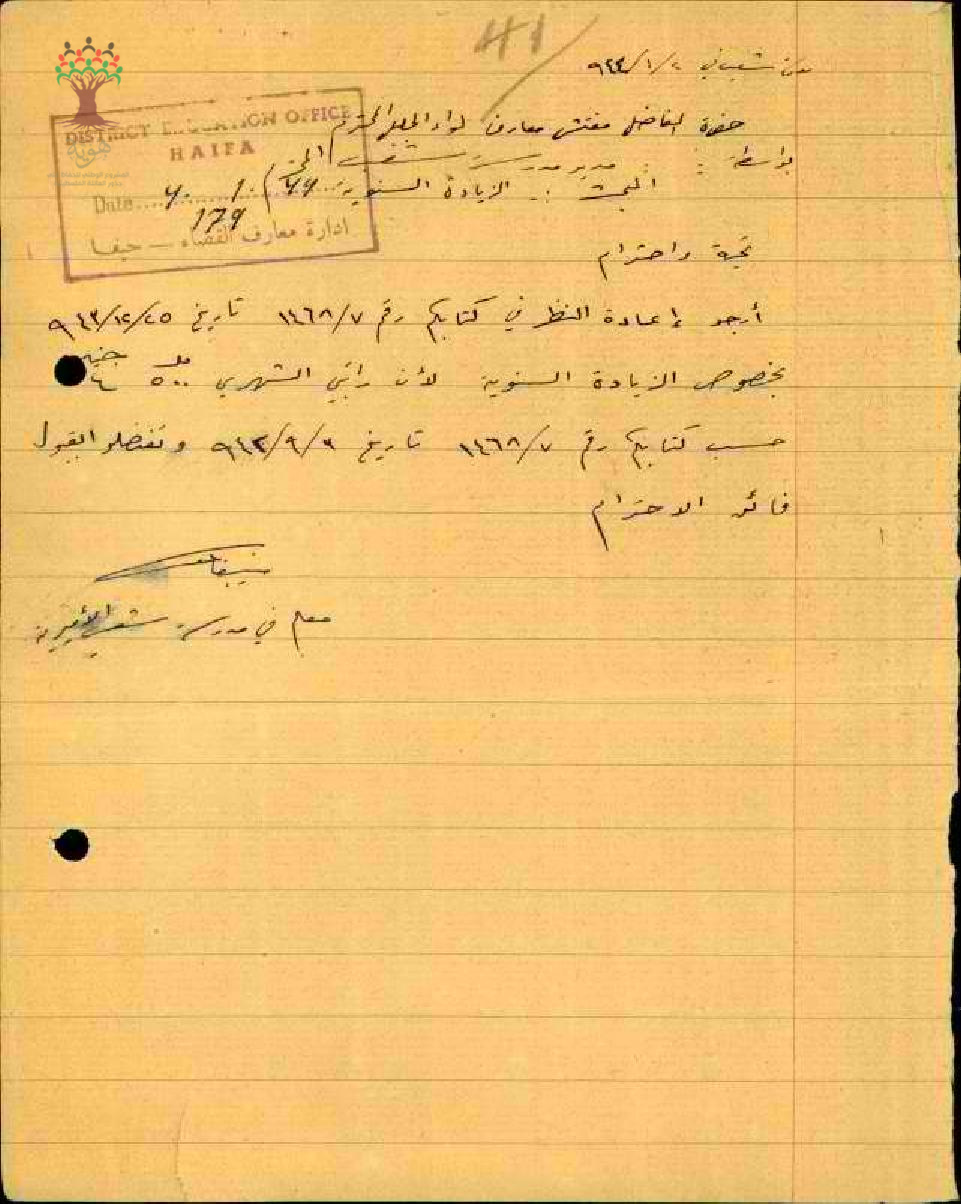 41
شعب في ٢/١/٩٤٤
حضرة الفاضل مفتش معارف لواء الجليل المحترم
بواسطة : مدير مدرسة شعب المحترم
البحث :- الزيادة السنوية
DISTRICT EDUCATION OFFICE
HAIFA
Date 4. 1. 44
179
ادارة معارف القضاء — حيفا
هوية
تحية واحترام
أرجو إعادة النظر في كتابكم رقم ١٤٦٨/٧ تاريخ ٢٥/١٢/٩٤٣
بخصوص الزيادة السنوية لأن راتبي الشهري ٥٠٠ مل ٤ جنيه
حسب كتابكم رقم ١٤٦٨/٧ تاريخ ٣/٩/٩٤٣ وتفضلوا بقبول
فائق الاحترام
معلم في مدرسة شعب الأميرية